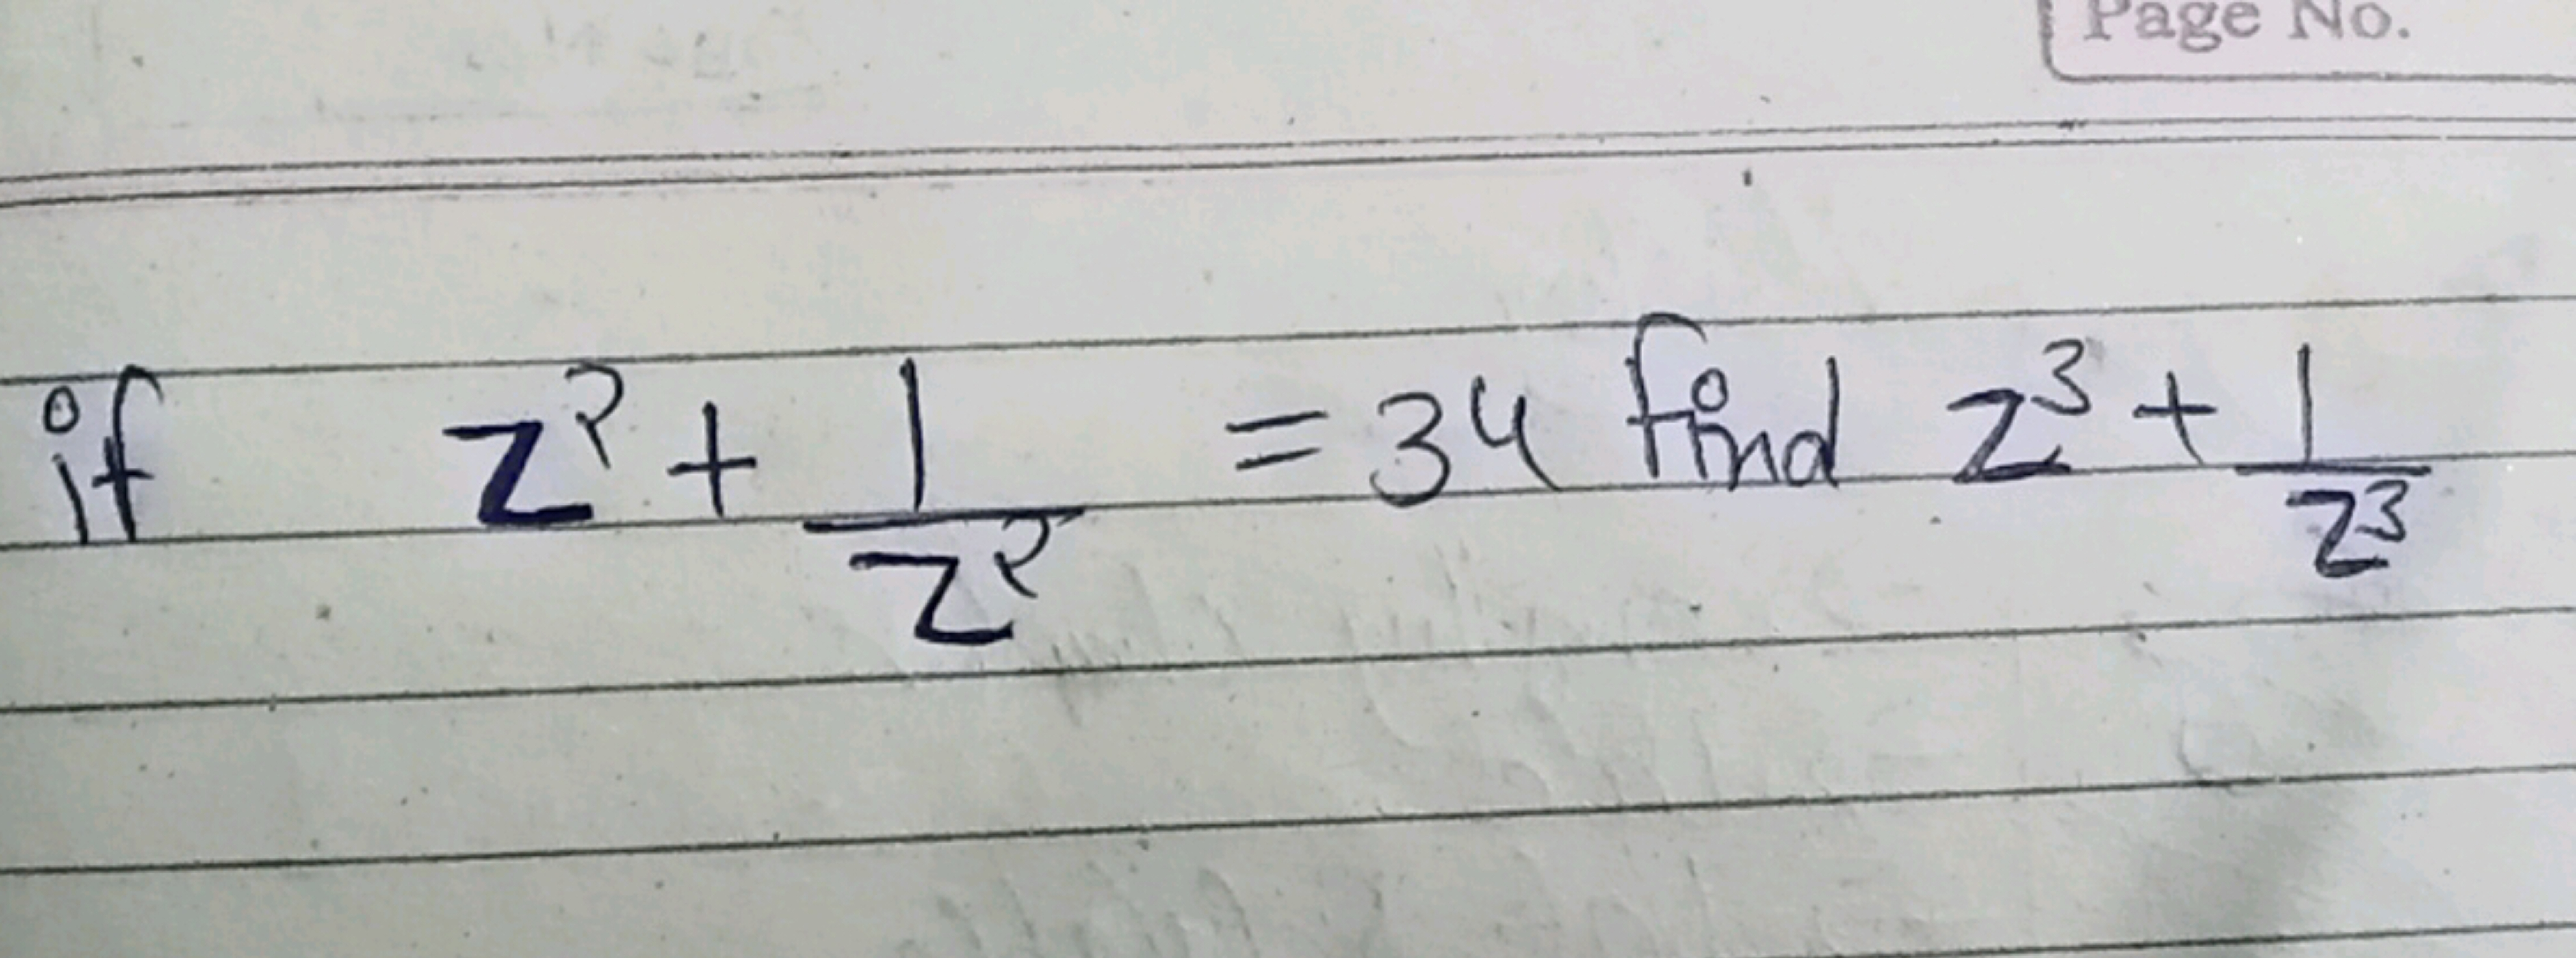 Page No.
if z² + 1/z² = 34 find z³ + 1/z³